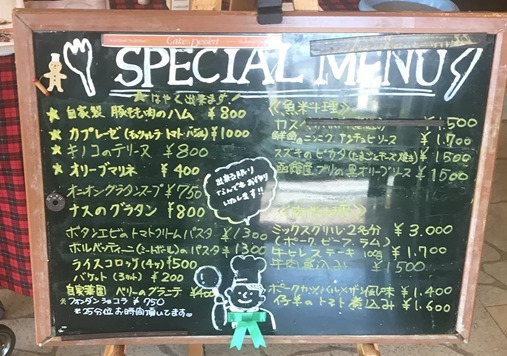 Cake & Dessert
SPECIAL MENU
★はやく出来ます
★ 自家製 豚もも肉のハム ¥800
★ カプレーゼ(モッツァレラ トマト バジル) ¥1000
★ キノコのテリーヌ ¥800
★ オリーブマリネ ¥400
オニオングラタンスープ ¥750
ナスのグラタン ¥800
ボタンエビのトマトクリームパスタ ¥1300
ポルペッティーニ(ミートボール)のパスタ ¥1300
ライスコロッケ(4ヶ) ¥500
バゲット(3ヶ) ¥200
自家菜園 ベリーのグラニテ ¥400
※フォンダンショコラ ¥750
※25分位お時間頂いてます
出来る限り
なんでもお作り
いたします!!
《魚料理》
¥1,500
アンチョビソース ¥1,700
スズキのピカタ(たまごとチーズ焼き) ¥1500
函館産ブリの黒オリーブソース ¥1500
ミックスグリル 2名分 ¥3,000
(ポーク、ビーフ、ラム)
牛ヒレステーキ 100g ¥1,700
¥1500
¥1,400
仔羊のトマト煮込み ¥1,600